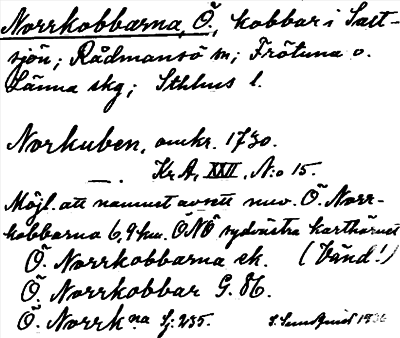 Norrkobbarna, Ö, kobbar i Salt-
sjön; Rådmansö sn; Frötuna o.
Länna skg; Sthlms l.
Norkuben, omkr. 1730.
—. Kr. A. XXII, N:o 15.
Möjl. att namnet avsett nuv. Ö. Norr-
kobbarna 6,9 km. ÖNÖ sydvästra karthörnet
Ö. Norrkobbarna ek. (Vänd!)
Ö. Norrkobbar G. 86.
Ö. Norrkna Sj. 235.
1936